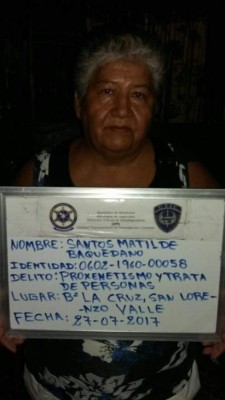 NOMBRE: SANTOS MATILDE
BAQUEDANO
IDENTIDAD: 0602-1960-00058
DELITO: PROXENETISMO Y TRATA
DE PERSONAS
LUGAR: Bº LA CRUZ, SAN LORE-
NZO VALLE
FECHA: 27-07-2017